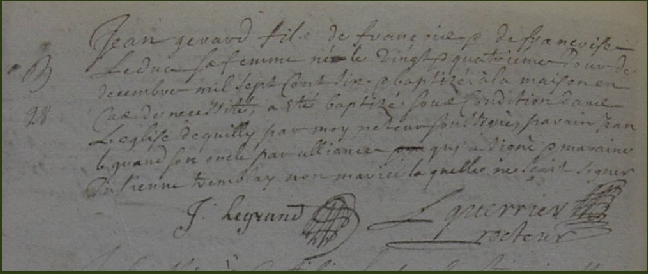 Jean gerard fils de françois & de françoise
B Leduc sa femme né le vingt & quatrieme Jour de
decembre mil sept cent six & baptizé a la maison en
28 Cas de necessité, a esté baptizé sous Condition dans
L'eglise de quilly par moy recteur soussigné, parain Jean
legrand son oncle par alliance qui a signé & maraine
Julienne non mariée la quelle ne scait signer
J. Legrand L guerrier
recteur